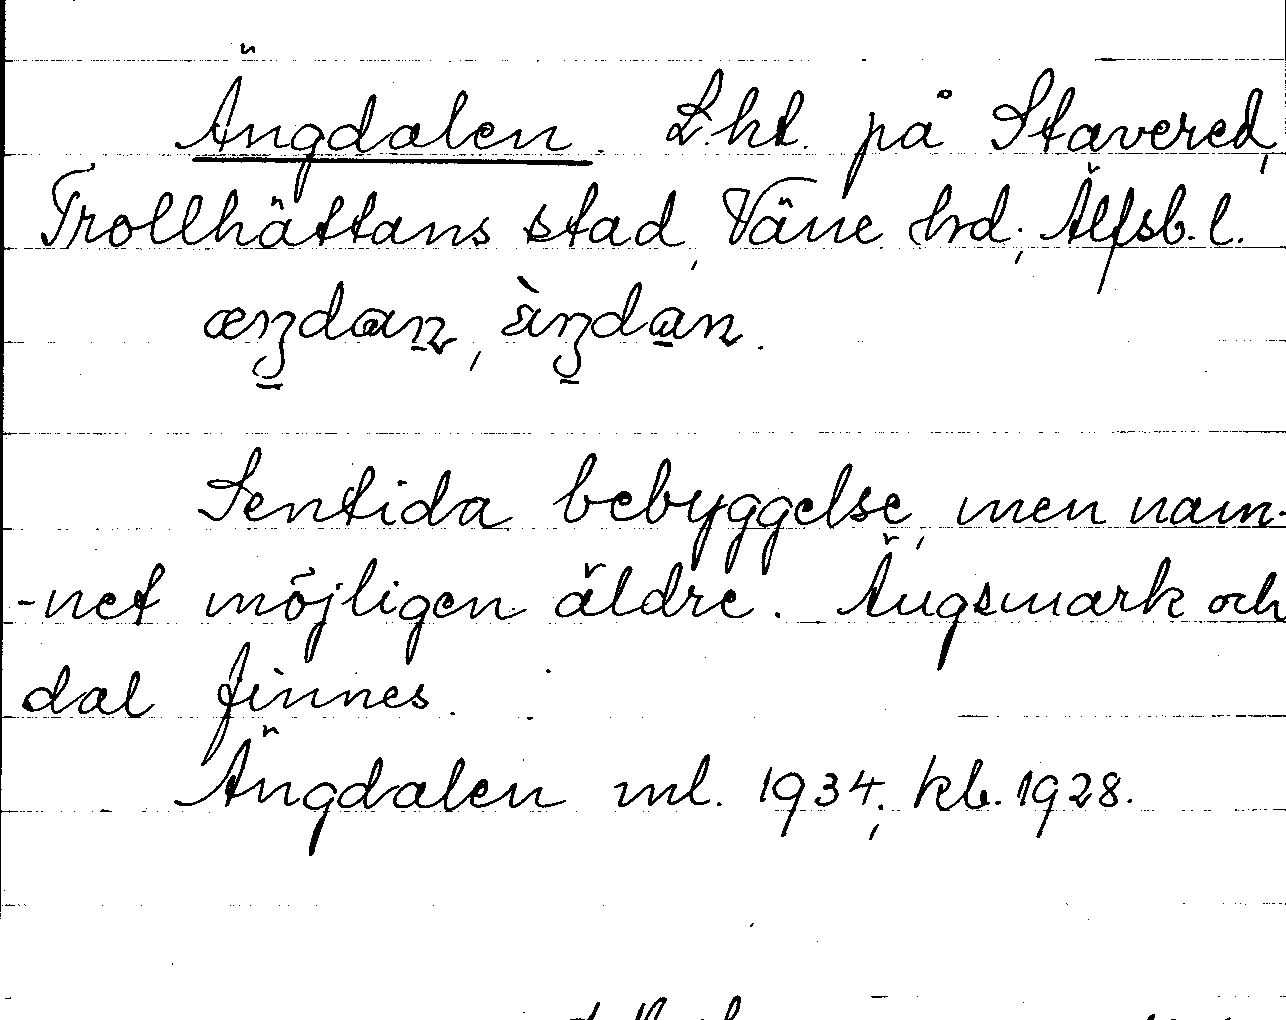 Ängdalen. L.ht. på Stavered,
Trollhättans stad, Väne hrd; Älfsb. l.
Sentida bebyggelse, men nam-
-net möjligen äldre. Ängsmark och
dal finnes.
Ängdalen ml. 1934; kb. 1928.